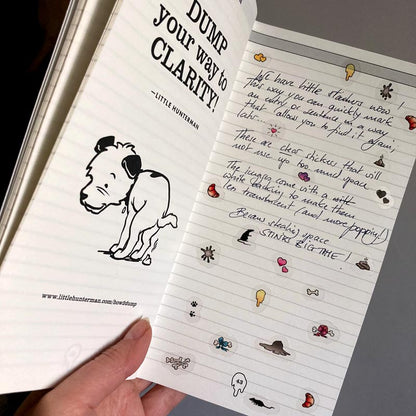 DUMP
your way to
CLARITY!
—LITTLE HUNTERMAN
www.littlehunterman.com/howddump
We have little stickers now!
This way you can quickly mark
an entry or sentence in a way
that allows you to find it again
later.
These are clear stickers that will
not use up too much space
The images come with a
white backing to make them
less translucent (and more poppin!)
Beans stealing space
STINKS BIG TIME!
43